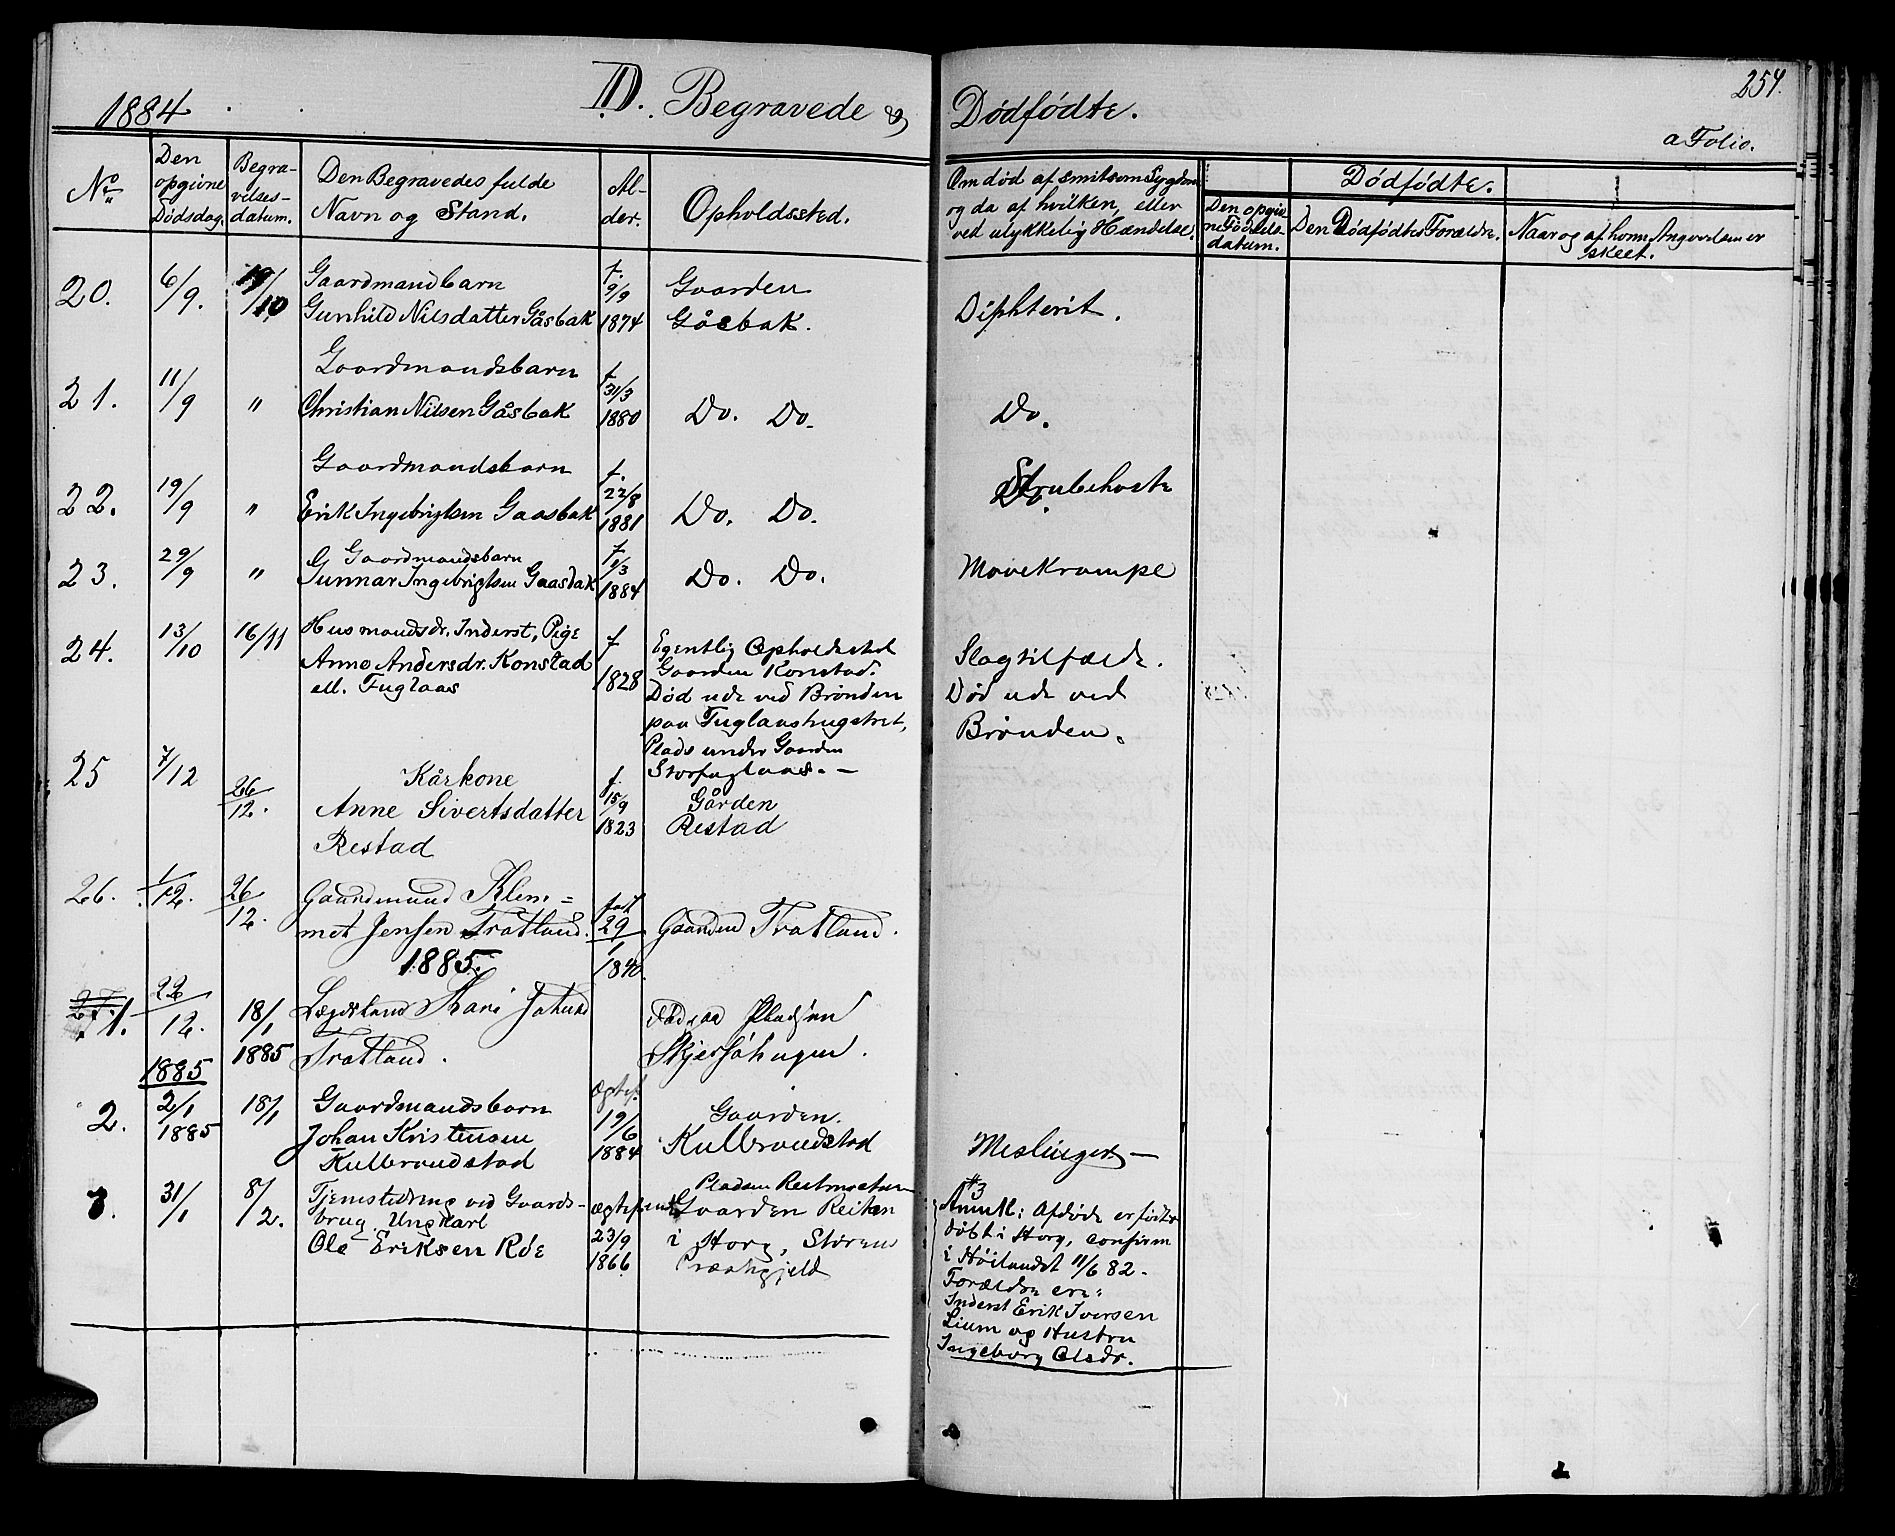 1884
D. Begravede &
No.
Den opgivne Dødsdag.
Begravelsesdatum.
Den Begravedes fulde
Navn og Stand.
Alder.
Opholdssted.
20. 6/9. 19/10 Gaardmandbarn
Gunhild Nilsdatter Gåsbak
f. 9/9 1874
Gaarden
Gåsbak.
21. 11/9 " Gaardmandsbarn
Christian Nilsen Gåsbak
f. 31/3 1880
Do. Do.
22. 19/9 " Gaardmandsbarn
Erik Ingebrigtsen Gaasbak
f. 22/8 1881
Do. Do.
23. 29/9 " Gaardmandsbarn
Gunnar Ingebrigtsen Gaasbak
1884
Do. Do.
24. 13/10 16/11 Husmandsdr. Inderst, Pige
Anne Andersdr. Konstad
ell. Fuglaas
f 1828
Egentlig Opholdssted
Gaarden Konstad.
Død ude ved Brønden
paa Fuglaashugstret,
Plads under Gaarden
Storfuglaas. —
25 7/12 26/12. Kårkone
Anne Sivertsdatter
Restad
f. 15/9 1823
Gården
Restad
26. 1/12. 26/12. Gaardmand Klem=
met Jensen Tratland.
født 29/1 1840
Gaarden Tratland.
1885.
27. 1. 22/12. 18/1 1885 Lægdslem Mari
Tratland.
Pladsen
1885
2. 2/1 1885 18/1 Gaardmandsbarn
Johan Kristensen
Kulbrandstad
ægtef. 19/6 1884
Gaarden.
Kulbrandstad
3. 31/1 8/2. Tjenestedreng ved Gaards-
brug, Ungkarl
Ole Eriksen Røe
ægtefendt 23/9 1866
Pladsen
Gaarden Reitan
i Horg, Støren
Præstegjeld
Dødfødte.
254.
a Folio.
Om død af smitsom Sygdom
og da af hvilken, eller
ved ulykkelig Hændelse.
Dødfødte.
Den opgivne Fødselsdatum.
Den Dødfødtes Forældre.
Naar og af hvem Angivelsen er
skeet.
Diphterit.
Do.
Strubehoste
Do.
Mavekrampe
Slagtilfælde.
Død ude ved
Brønden.
Meslinger —
#3
Anmk: Afdøde er født
døbt i Horg, confirm
i Høilandet 11/6 82.
Forældre ere:
Inderst Erik Iversen
Lium og Hustru
Ingeborg Olsdr.